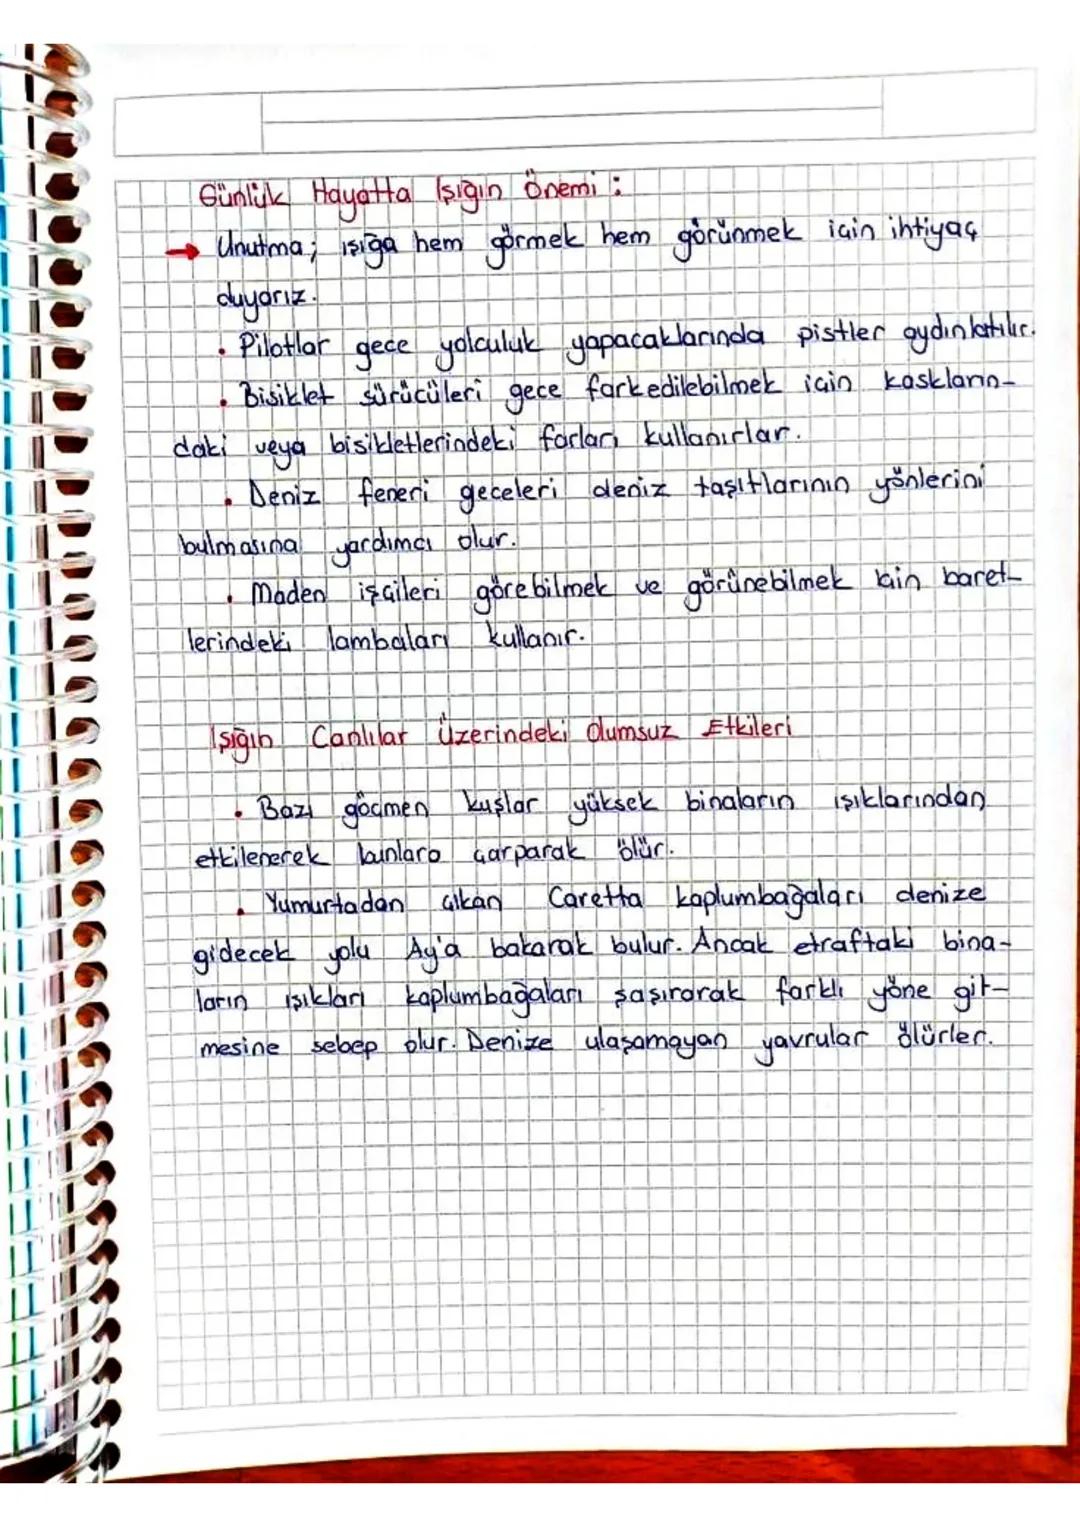 Günlük Hayatta Işığın Önemi :
→ Unutma; ışığa hem görmek hem görünmek için ihtiyaç
duyarız.
• Pilotlar gece yolculuk yapacaklarında pistler aydınlatılır.
• Bisiklet sürücüleri gece farkedilebilmek için kaskların-
daki veya bisikletlerindeki farları kullanırlar.
• Deniz feneri geceleri deniz taşıtlarının yönlerini
bulmasına yardımcı olur.
• Maden işçileri görebilmek ve görünebilmek için baret-
lerindeki lambaları kullanır.
Işığın Canlılar Üzerindeki Olumsuz Etkileri
• Bazı göçmen kuşlar yüksek binaların ışıklarından
etkilenerek bunlara çarparak ölür.
• Yumurtadan çıkan Caretta kaplumbağaları denize
gidecek yolu Ay'a bakarak bulur. Ancak etraftaki bina-
ların ışıkları kaplumbağaları şaşırarak farklı yöne git-
mesine sebep olur. Denize ulaşamayan yavrular ölürler.